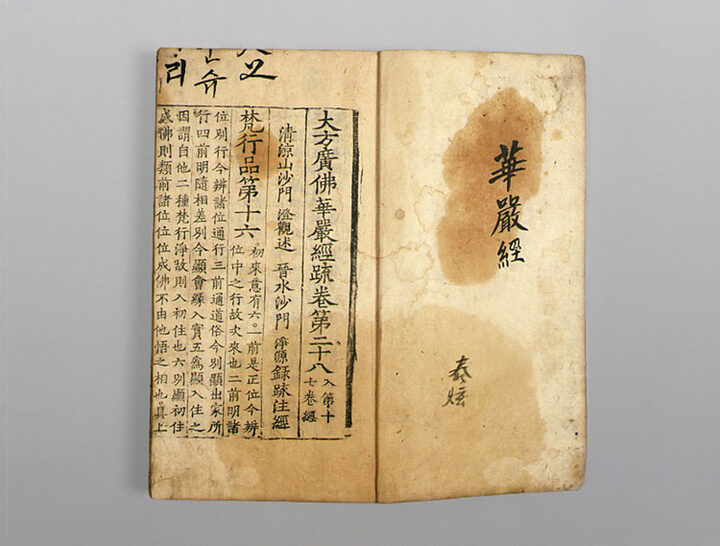 華嚴經
泰炫
大方廣佛華嚴經疏卷第二十八 入第十七卷經
清涼山沙門 澄觀述 晉水沙門 淨源錄疏注經
梵行品第十六 初來意有六。一前是正位今辨
位中之行故次來也二前明諸
位別行今辨諸位通行三前通道俗今別顯出家所
行四前明隨相差別今顯會緣入實五爲顯入住之
因謂自他二種梵行淨故則入初住也六別顯初住
成佛則類前諸位位位成佛不由他悟之相也。具上